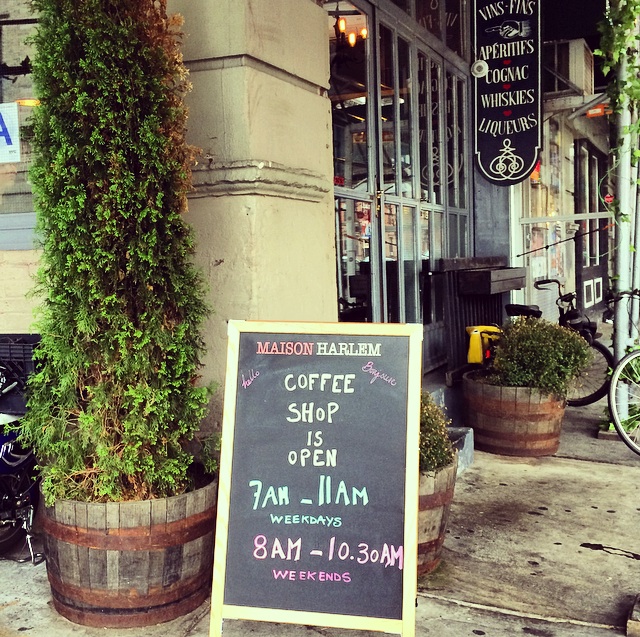 A
VINS-FINS
APÉRITIFS
COGNAC
WHISKIES
LIQUEURS
MAISON HARLEM
hello
Bonjour
COFFEE
SHOP
IS
OPEN
7AM - 11AM
WEEKDAYS
8AM - 10.30AM
WEEKENDS